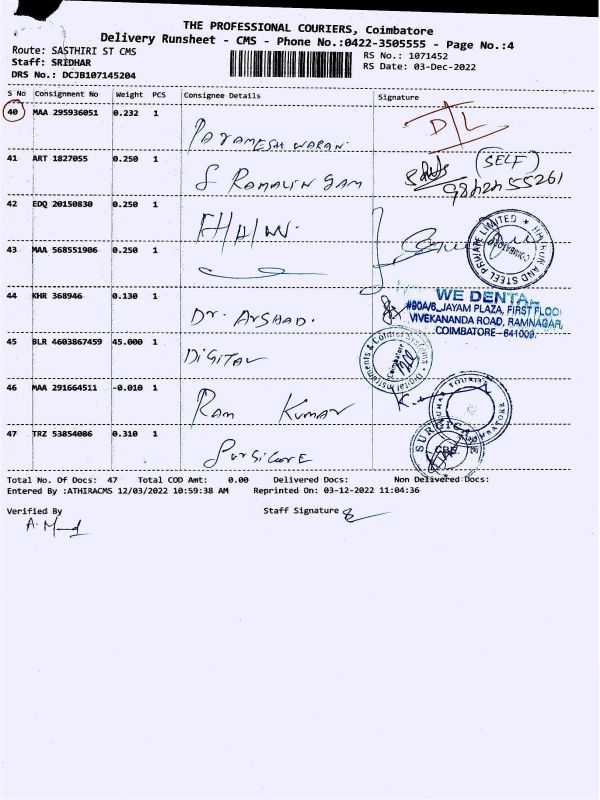 THE PROFESSIONAL COURIERS, Coimbatore
Delivery Runsheet - CMS - Phone No.:0422-3505555 - Page No.:4
Route: SASTHIRI ST CMS
RS No.: 1071452
Staff: SRIDHAR
RS Date: 03-Dec-2022
DRS No.: DCJB107145204
S No Consignment No Weight PCS Consignee Details Signature
40 MAA 295936051 0.232 1 PARAMESHWARAN D/L
41 ART 1827055 0.250 1 S RAMALINGAM (SELF)
42 EDQ 20150830 0.250 1
43 MAA 568551906 0.250 1
44 KHR 368946 0.130 1 Dr. ArSHAD.
WE DENTAL
#90A/6, JAYAM PLAZA, FIRST FLOOR
VIVEKANANDA ROAD, RAMNAGAR,
COIMBATORE - 641009.
45 BLR 4603867459 45.000 1 DIGITAL
Digital Instruments & Control Systems
Coimbatore
46 MAA 291664511 -0.010 1 RAM KUMAR
47 TRZ 53854086 0.310 1 SURGICARE
Total No. Of Docs: 47 Total COD Amt: 0.00 Delivered Docs: Non Delivered Docs:
Entered By :ATHIRACMS 12/03/2022 10:59:38 AM Reprinted On: 03-12-2022 11:04:36
Verified By Staff Signature